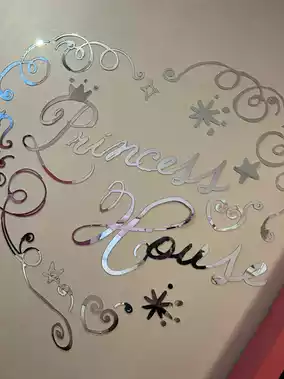 Princess
House